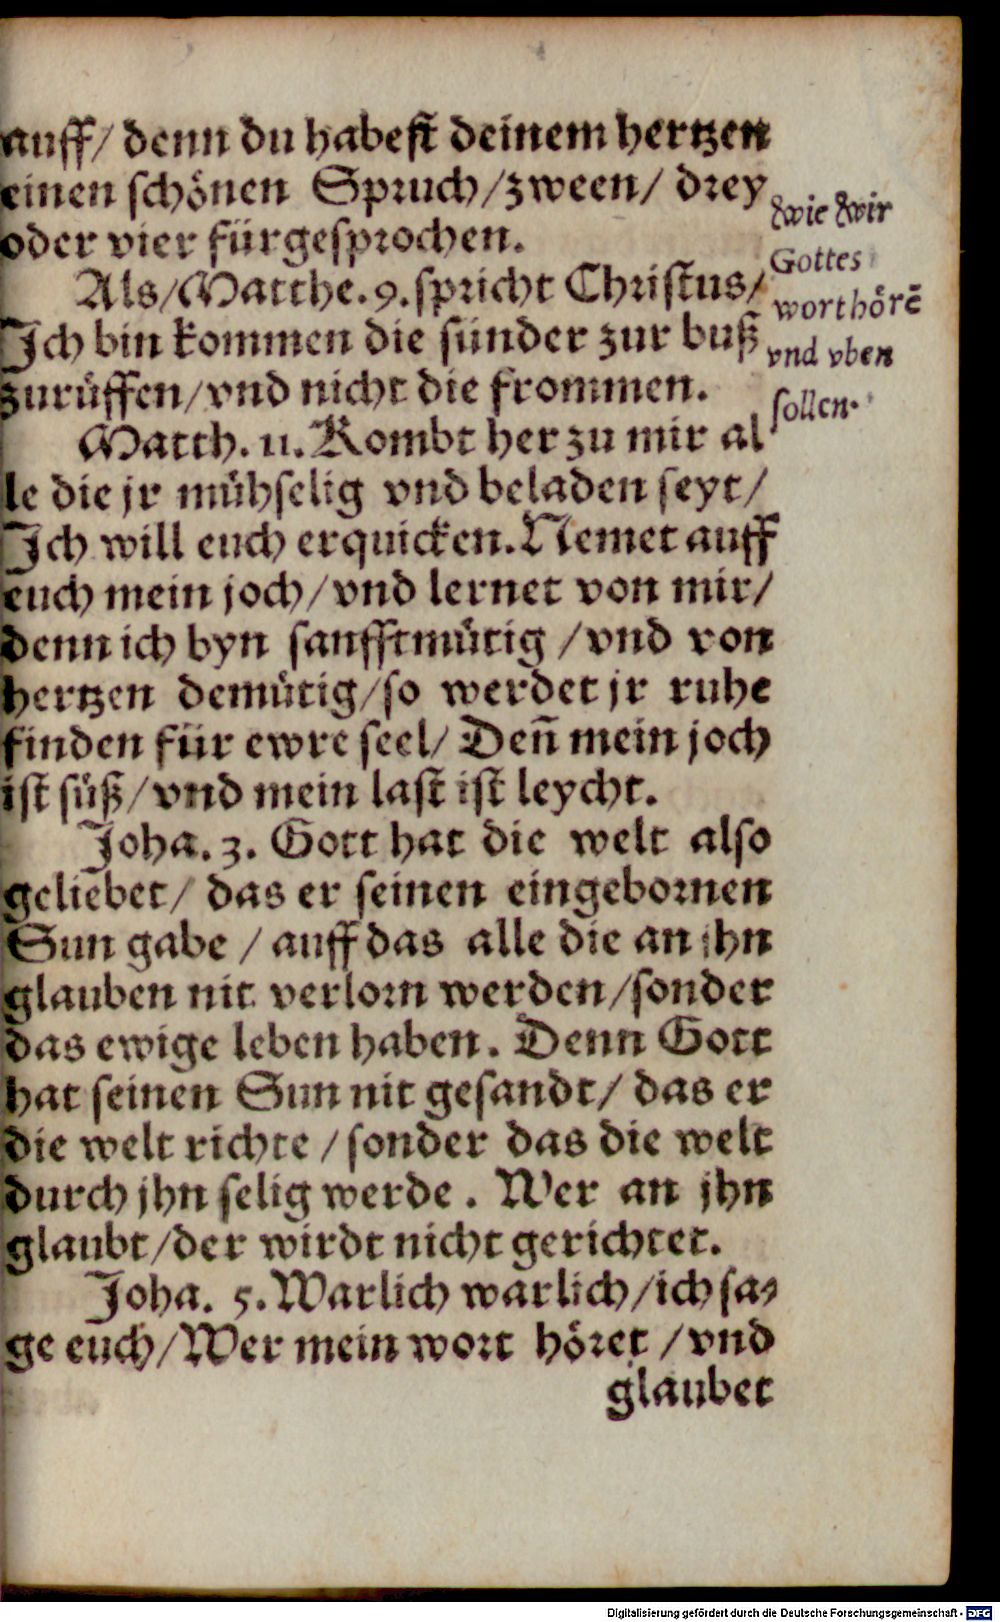 auff/ denn du habest deinem hertzen
einen schönen Spruch/zween/ drey
oder vier fürgesprochen.
Als/Matthe.9.spricht Christus/
Ich bin kommen die sünder zur buß
zurüffen/vnd nicht die frommen.
Matth.11.Kombt her zu mir al
le die jr mühselig vnd beladen seyt/
Ich will euch erquicken.Nemet auff
euch mein joch/vnd lernet von mir/
denn ich byn sanfftmütig /vnd von
hertzen demütig/so werdet jr ruhe
finden für ewre seel/ Deñ mein joch
ist süß/vnd mein last ist leycht.
Joha.3. Gott hat die welt also
geliebet/ das er seinen eingebornen
Sun gabe / auff das alle die an jhn
glauben nit verlorn werden/sonder
das ewige leben haben. Denn Gott
hat seinen Sun nit gesandt/ das er
die welt richte /sonder das die welt
durch jhn selig werde . Wer an jhn
glaubt/der wirdt nicht gerichtet.
Joha. 5.Warlich warlich/ich sa-
ge euch/Wer mein wort höret /vnd
glaubet
wie wir
Gottes
wort hörē
vnd vben
sollen.
Digitalisierung gefördert durch die Deutsche Forschungsgemeinschaft - DFG